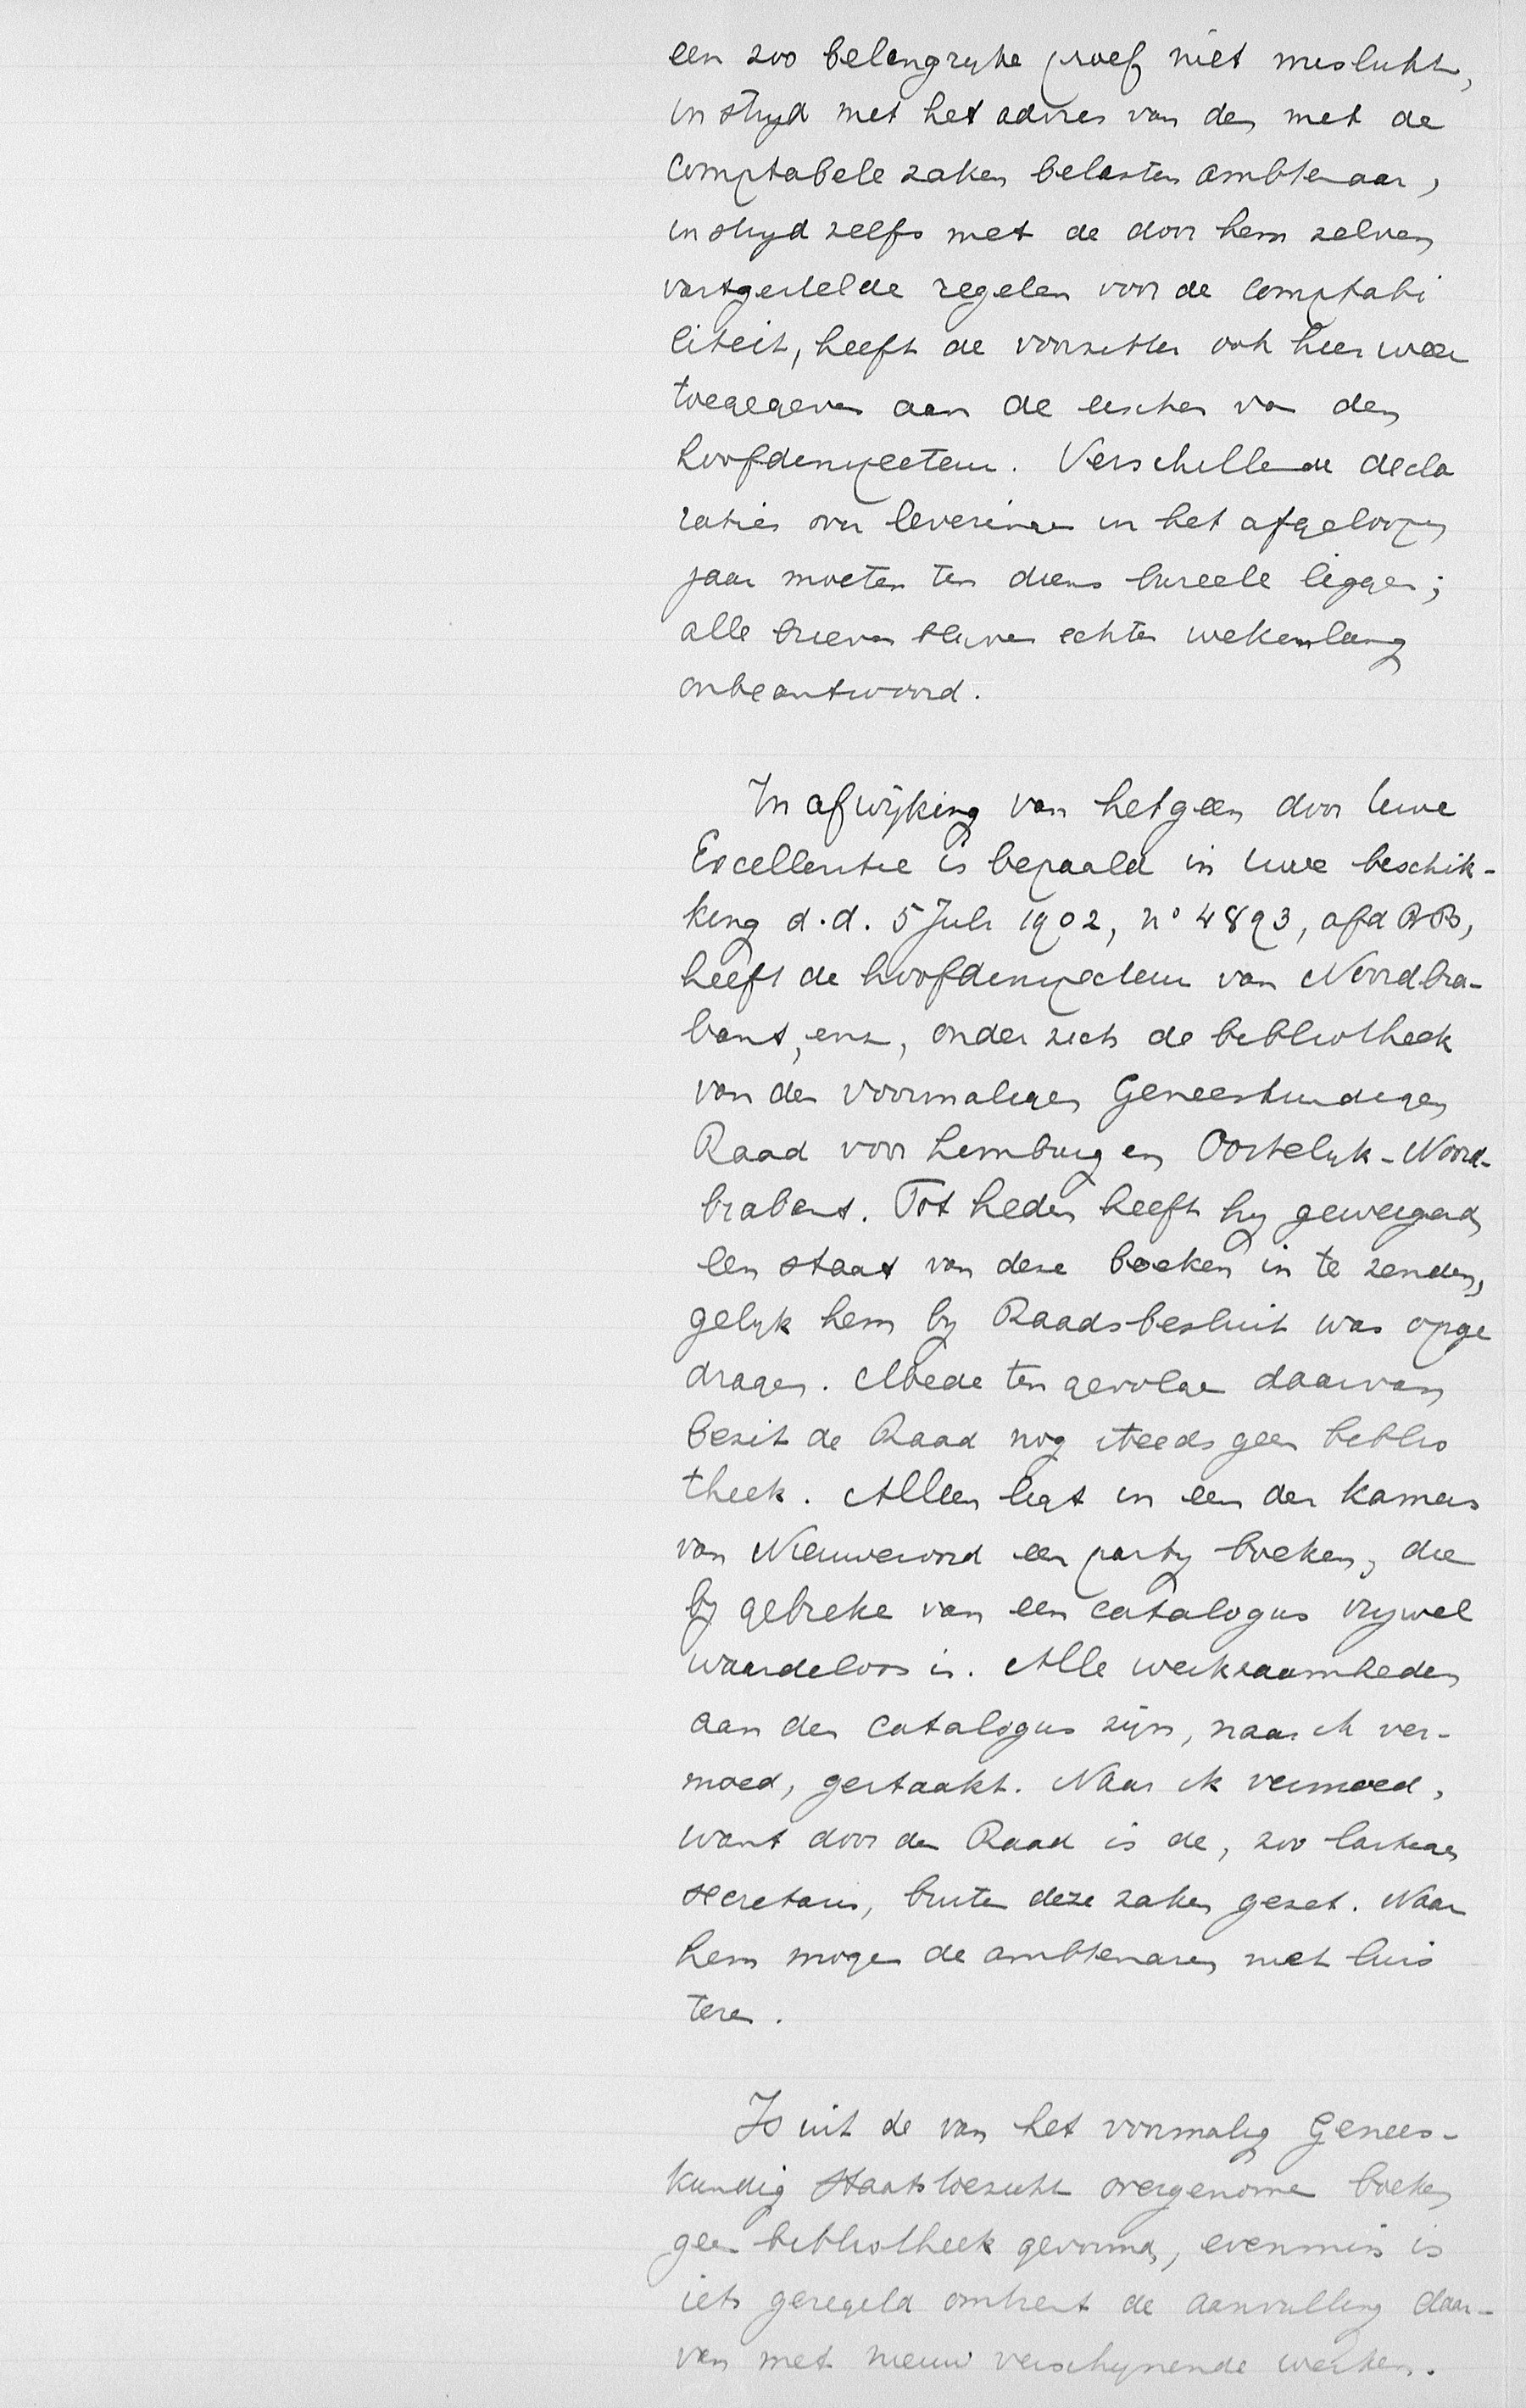 een zoo belangryke proef niet mislukt,
in stryd met het advies van den met de
Comptabele zaken belasten ambtenaar,
in stryd zelfs met de door hem zelven
vastgestelde regelen voor de comptabi
liteit, heeft de voorzitter ook hier weer
toegegeven aan de eischen van den
hoofdinspecteur. Verschillende decla
raties over leveringen in het afgeloopen
jaar moeten ten diens bureele liggen;
alle brieven blyven echter wekenlang
onbeantwoord.
In afwijking van hetgeen door Uwe
Excellentie is bepaald in Uwe beschik-
king d.d. 5 Juli 1902, no 4893, afd BB,
heeft de hoofdinspecteur van Noordbra-
bant, enz, onder zich de bibliotheek
van den voormaligen Geneeskundigen
Raad voor Limburg en Oostelyk-Noord-
brabant. Tot heden heeft hy geweigerd
een staat van deze boeken in te zenden,
gelyk hem by Raadsbesluit was opge
dragen. Mede ten gevolge daarvan
bezit de Raad nog steeds geen biblio
theek. Alleen ligt in een der kamers
van Nieuweroord een party boeken, die
by gebreke van een catalogus vrywel
waardeloos is. Alle werkzaamheden
aan den catalogus zijn, naar ik ver-
moed, gestaakt. Naar ik vermoed,
want door den Raad is de, zoo lastige
secretaris, buiten deze zaken gezet. Naar
hem mogen de ambtenaren niet luis
teren.
Is uit de van het voormalig Genees-
kundig Staatstoezicht overgenomen boeken
geen bibliotheek gevormd, evenmin is
iets geregeld omtrent de aanvulling daar-
van met nieuw verschynende werken.